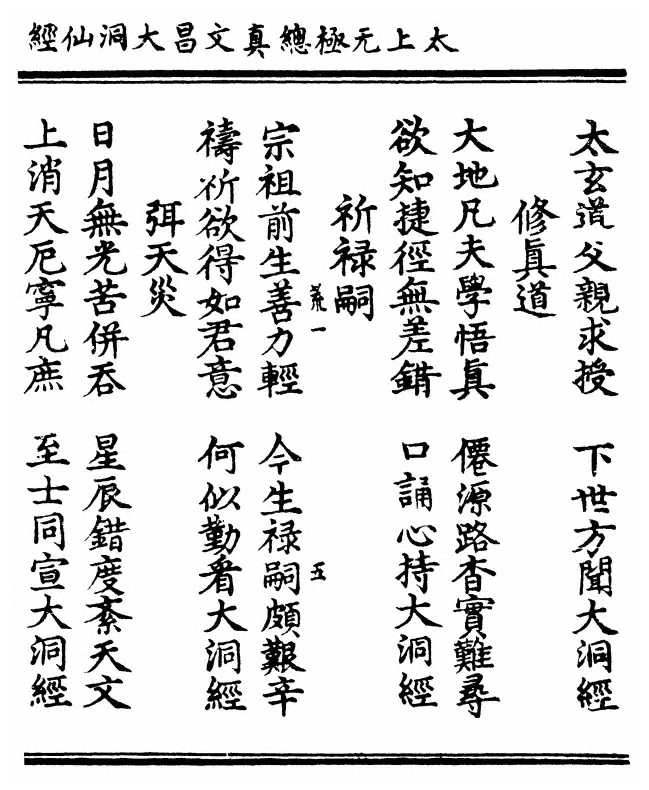 太上无極總真文昌大洞仙經
太玄道父親求授　下世方聞大洞經
修眞道
大地凡夫學悟眞　僊源路杳實難尋
欲知捷徑無差錯　口誦心持大洞經
祈禄嗣
荒一　五
宗祖前生善力輕　今生禄嗣頗艱辛
禱祈欲得如君意　何似勤看大洞經
弭天災
日月無光苦併吞　星辰錯度紊天文
上消天厄寧凡庶　至士同宣大洞經